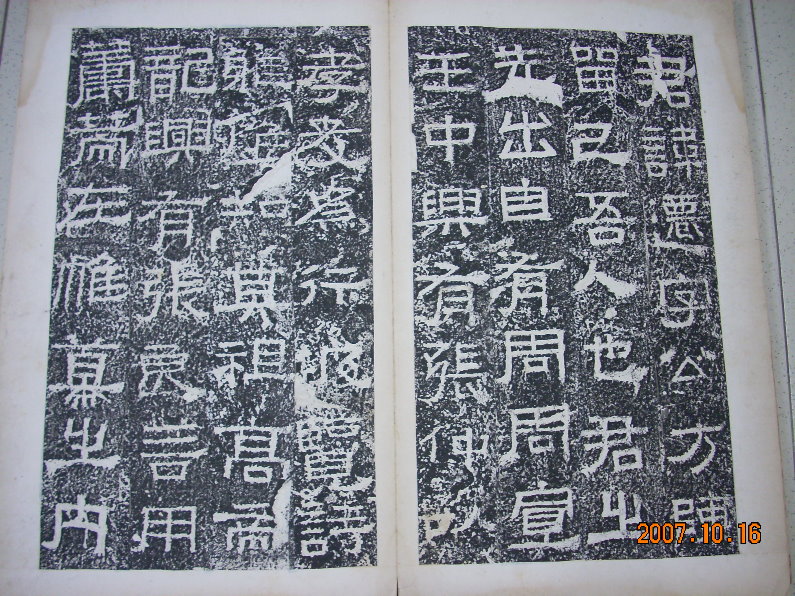 君諱遷字公方陳
留己吾人也君之
先出自有周周宣
王中興有張仲以
孝友為行披覽詩
雅煥知其祖高帝
龍興有張良善用
籌策在帷幕之內
2007.10.16